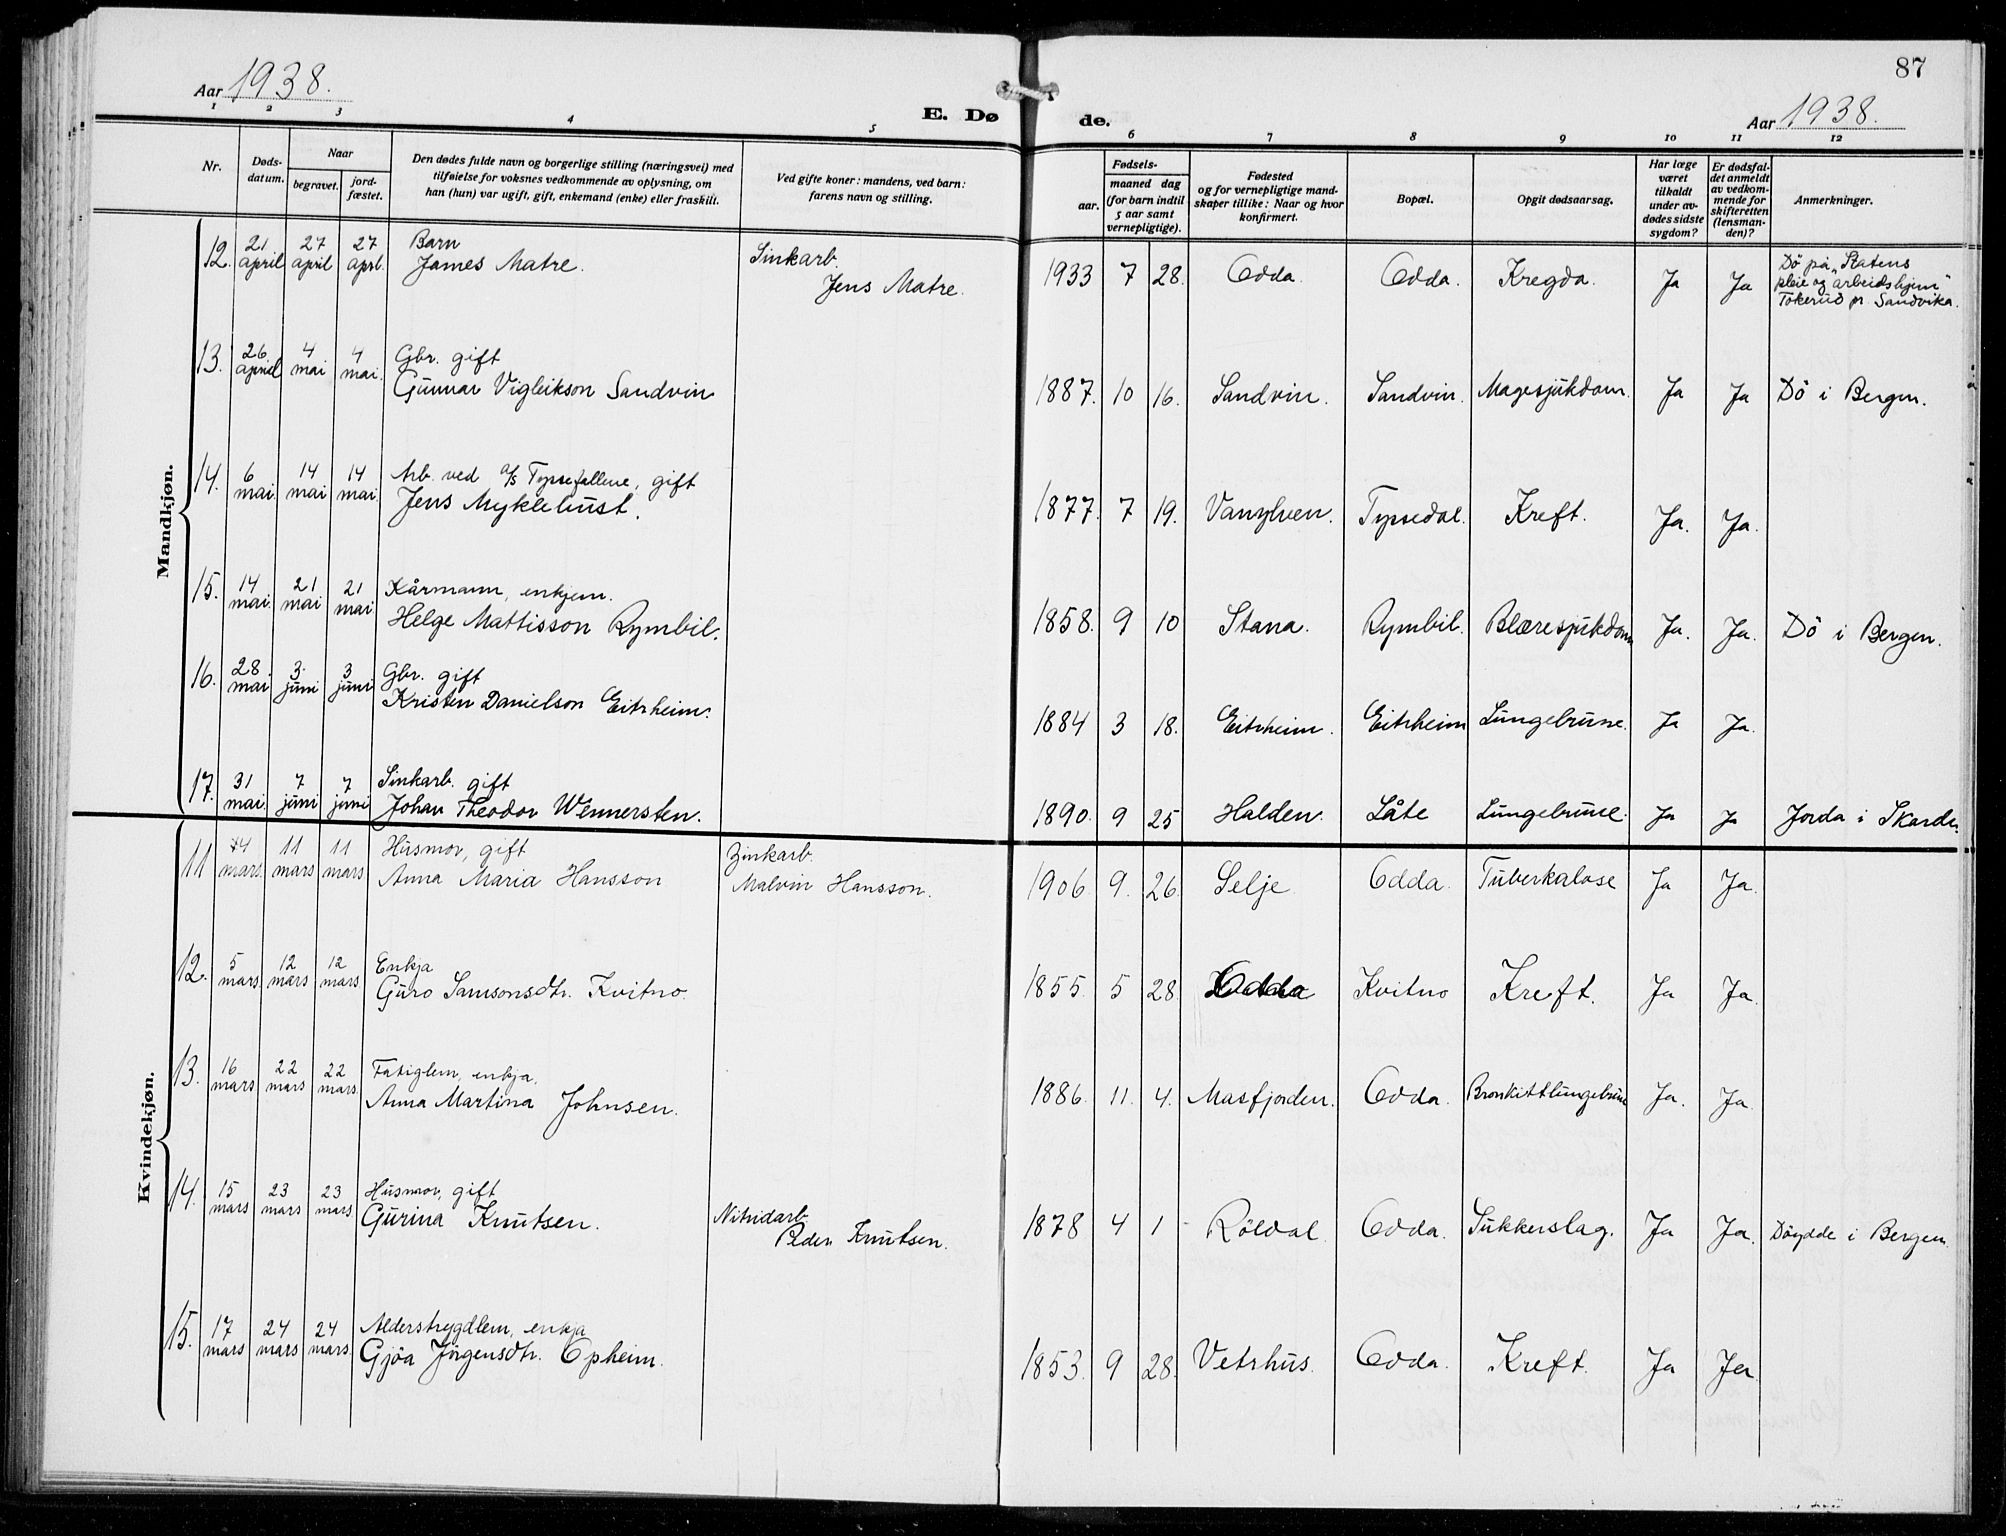 87
Aar 1938.
Aar 1938.
E. Dø de.
1 2 3 4 5 6 7 8 9 10 11 12
Nr.
Døds-
datum.
Naar
begravet.
jord-
fæstet.
Den dødes fulde navn og borgerlige stilling (næringsvei) med
tilføielse for voksnes vedkommende av oplysning, om
han (hun) var ugift, gift, enkemand (enke) eller fraskilt.
Ved gifte koner: mandens, ved barn:
farens navn og stilling.
Fødsels-
aar.
maaned dag
(for barn indtil
5 aar samt
vernepligtige).
Fødested
og for vernepligtige mand-
skaper tillike: Naar og hvor
konfirmert.
Bopæl.
Opgit dødsaarsag.
Har læge
været
tilkaldt
under av-
dødes sidste
sygdom?
Er dødsfal-
det anmeldt
av vedkom-
mende for
skifteretten
(lensman-
den)?
Anmerkninger.
Mandkjøn.
12. 21 april 27 april 27 aprl. Barn
James Matre.
Sinkarb.
Jens Matre.
1933 7 28. Odda. Odda. Kregda. Ja Ja
Dö på "Statens
pleie og arbeidshjem"
Tokerud pr. Sandvika.
13. 26 april 4 mai 4 mai. Gbr. gift
Gunnar Vigleikson Sandvin
1887. 10 16. Sandvin. Sandvin. Magesjukdom. Ja Ja Dö i Bergen.
14. 6 mai. 14 mai 14 mai. Arb. ved A/S Tyssefallene, gift
Jens Myklebust.
1877. 7 19. Vanylven. Tyssedal. Kreft. Ja. Ja.
15. 14 mai. 21 mai 21 mai Kårmann, enkjem.
Helge Mattisson Rymbil.
1858. 9 10 Stana. Rymbil. Blæresjukdom Ja. Ja. Dö i Bergen.
16. 28 mai 3. juni 3 juni Gbr. gift
Kristen Danielson Eitrheim.
1884 3 18. Eitrheim. Eitrheim Lungebrune. Ja Ja.
17. 31 mai. 7 juni 7 juni Sinkarb. gift
Johan Theodor Wennersten.
1890. 9 25 Halden. Låte Lungebrune. Ja Ja Jorda i Skarde.
Kvindekjøn.
11 4 mars. 11 mars 11 mars Husmor, gift
Anna Maria Hansson
Zinkarb.
Malvin Hansson.
1906 9. 26. Selje. Odda. Tuberkalose Ja Ja.
12. 5 mars. 12 mars 12 mars. Enkja
Guro Samsonsdtr. Kvitno.
1855. 5 28. Odda Kvitno Kreft. Ja Ja.
13. 16 mars 22 mars 22 mars. Fatiglem, enkja.
Anna Martina Johnsen.
1886. 11. 4. Masfjorden. Odda. Bronkitt lungebrune Ja. Ja.
14. 15 mars 23 mars 23 mars. Husmor, gift
Gurina Knutsen.
Nitridarb.
Peder Knutsen.
1878 4 1 - Röldal. Odda. Sukkerslag. Ja Ja. Döydde i Bergen.
15. 17 mars 24 mars 24 mars. Alderstrygdlem, enkja
Gjöa Jörgensdtr. Opheim.
1853. 9 28. Vetrhus. Odda. Kreft. Ja Ja